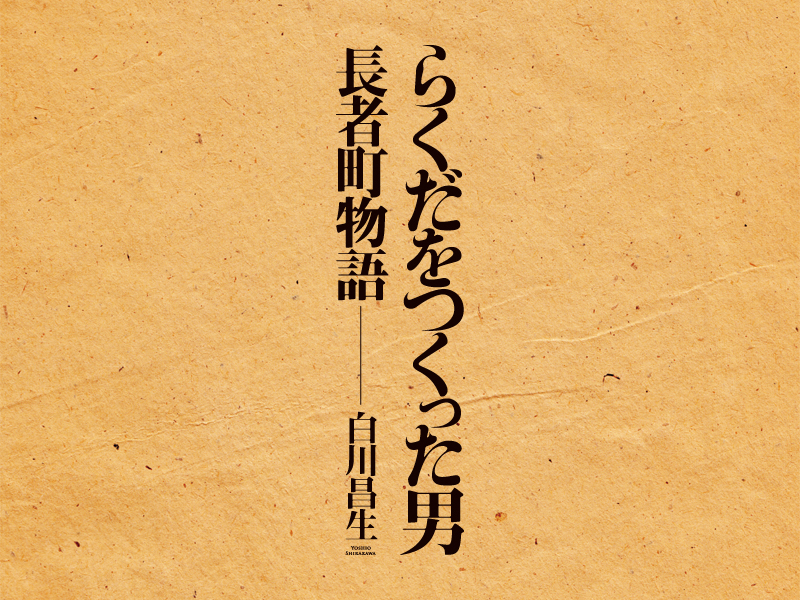 らくだをつくった男
長者町物語——白川昌生
YOSHIO
SHIRAKAWA